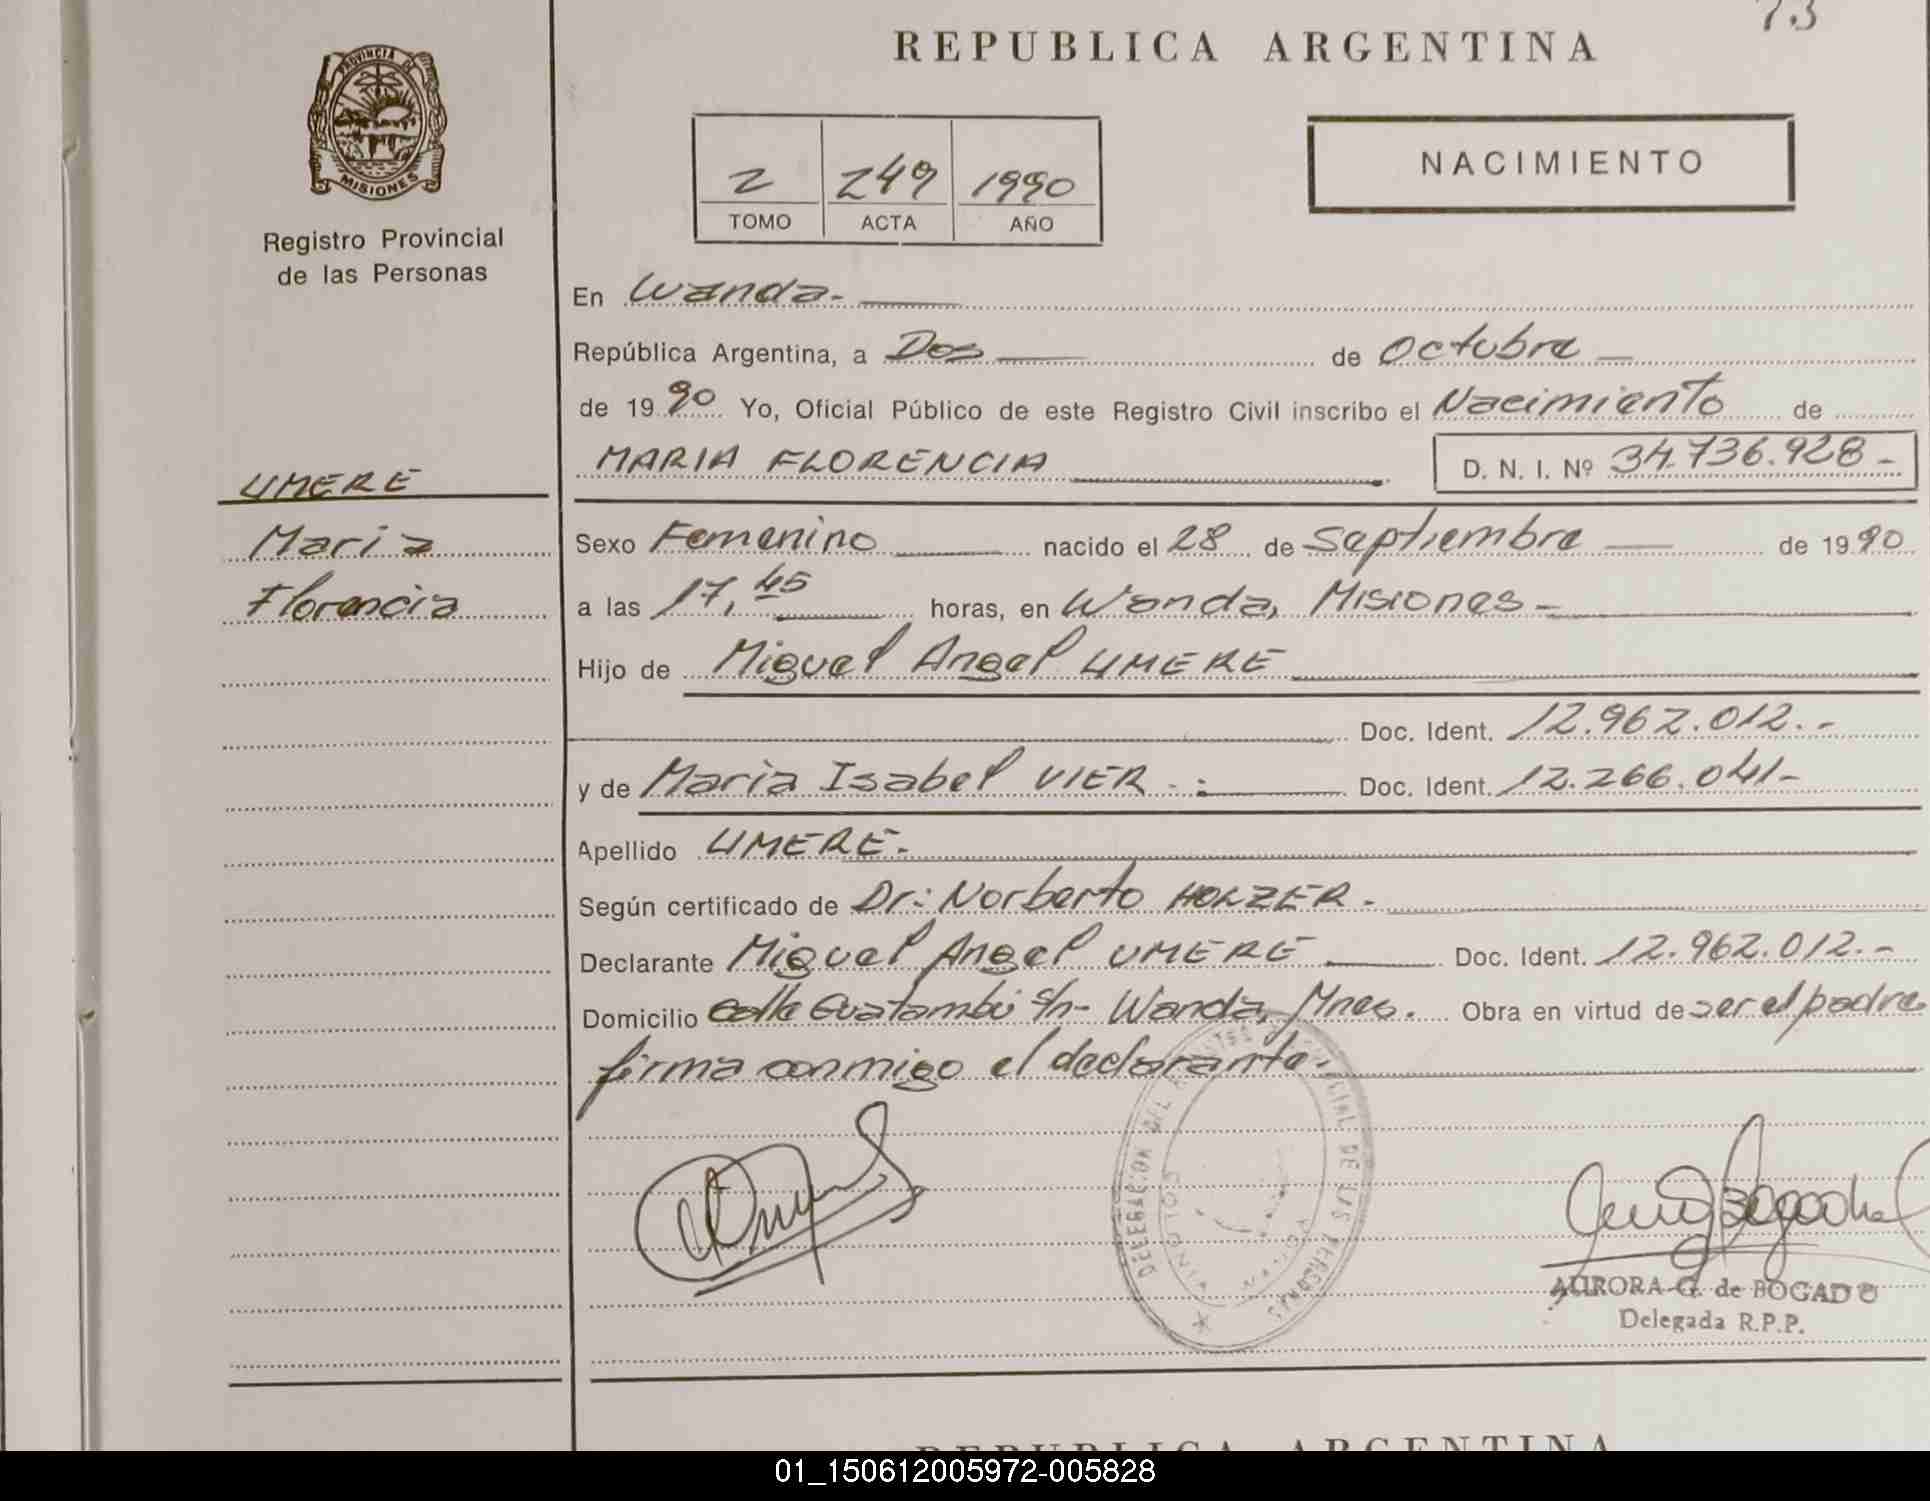 73
REPUBLICA ARGENTINA
PROVINCIA DE
MISIONES
Registro Provincial
de las Personas
2 249 1990
TOMO ACTA AÑO
NACIMIENTO
En Wanda.-
República Argentina, a Dos de Octubre
de 1990 Yo, Oficial Público de este Registro Civil inscribo el Nacimiento de
MARIA FLORENCIA D. N. I. Nº 34.736.928-
UMERE
Maria
Florencia
Sexo Femenino nacido el 28 de Septiembre de 1990
a las 17,45 horas, en Wanda, Misiones-
Hijo de Miguel Angel UMERE
Doc. Ident. 12.962.012.-
y de Maria Isabel VIER.- Doc. Ident. 12.266.041-
Apellido UMERE.-
Según certificado de Dr: Norberto HOLZER.-
Declarante Miguel Angel UMERE Doc. Ident. 12.962.012.-
Domicilio calle Guatambú s/n- Wanda, Mnes. Obra en virtud de ser el padre
firma conmigo el declarante.
DELEGACION DE LAS PERSONAS
AURORA G. de BOGADO
Delegada R.P.P.
REPUBLICA ARGENTINA
01_150612005972-005828